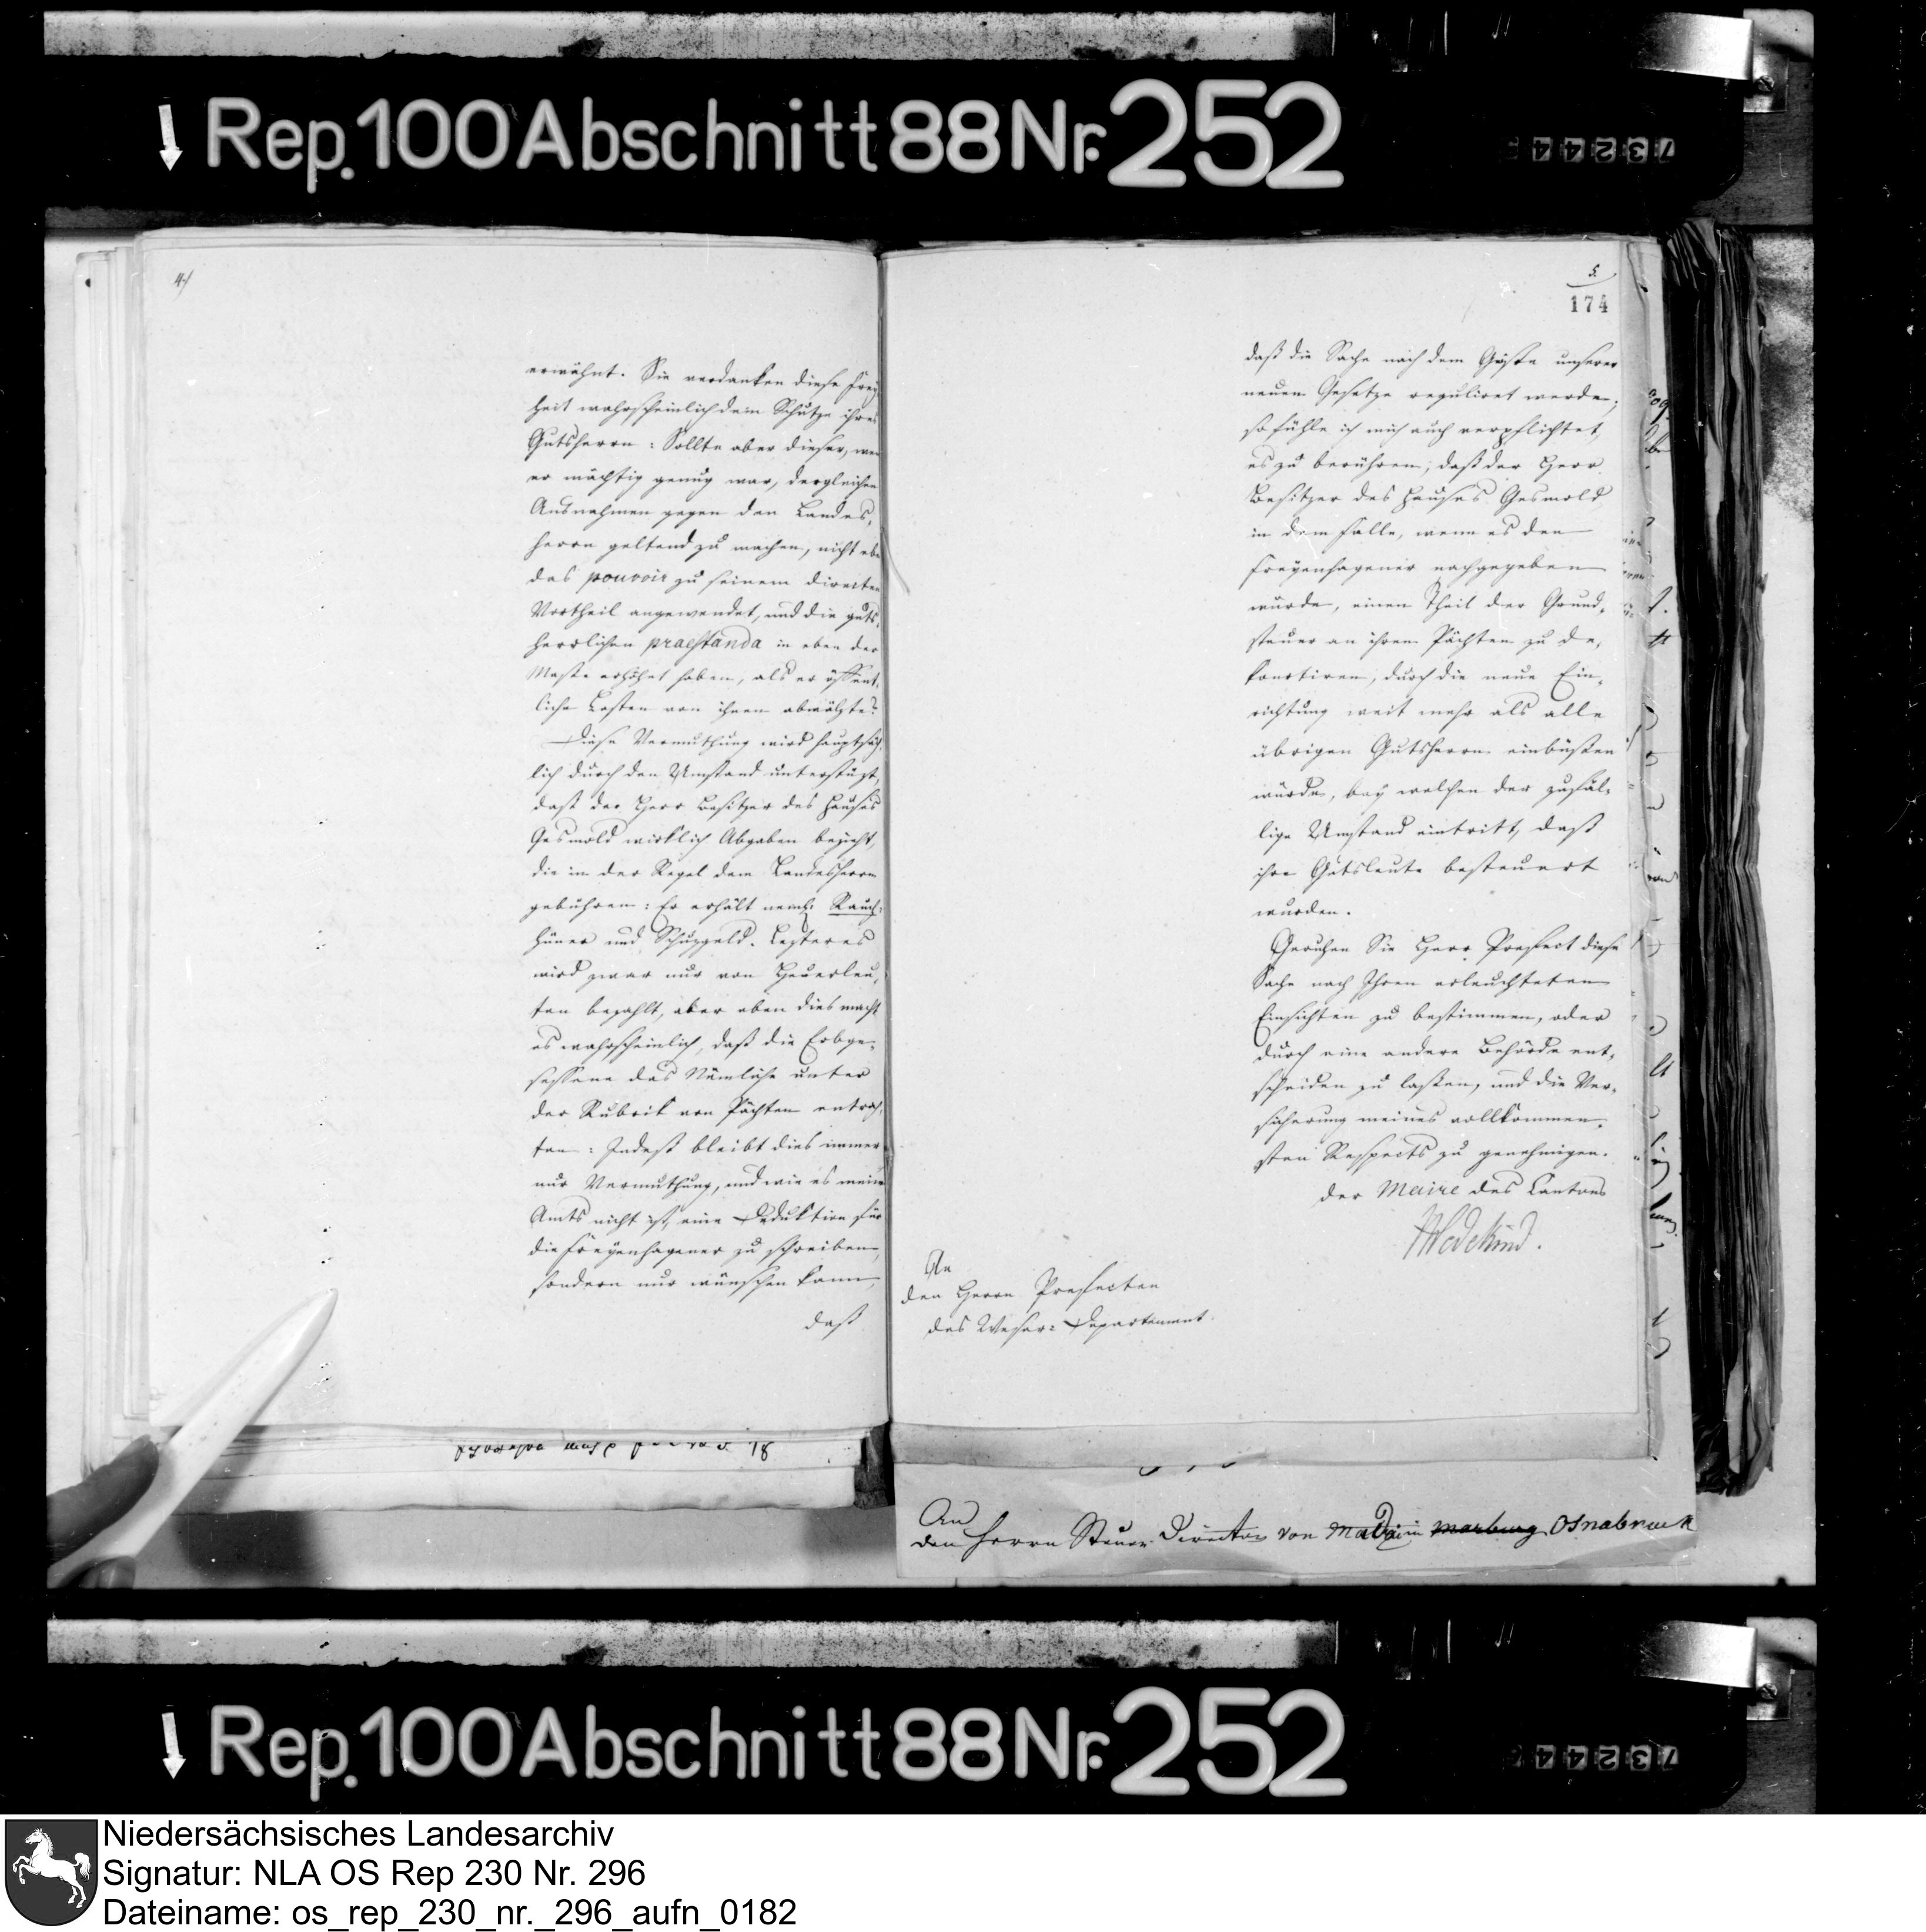 Rep. 100 Abschnitt 88 Nr. 252
73244
4
erwähnt. Sie verdanken diese Frey
heit wahrscheinlich dem Schutze ihres
Gutsherrn: Sollte aber dieser, wenn
er mächtig genug war, dergleichen
Ausnahmen gegen den Landes-
herrn geltend zu machen, nicht eben
das pouvoir zu seinem directen
Vortheil angewendet, und die guts-
herrlichen praestanda in eben der
Maße erhöhet haben, als er öffent-
liche Lasten von ihnen abwälzte?
Diese Vermuthung wird hauptsäch-
lich durch den Umstand unterstüzt,
daß der Herr Besitzer des Hauses
Gesmold wirklich Abgaben bezieht,
die in der Regel dem Landesherrn
gebühren: Er erhält neml. Rauch-
hüner und Schuzgeld. Lezteres
wird zwar nur von Heuerleu-
ten bezahlt, aber eben dies macht
es wahrscheinlich, daß die Erbge-
sessene das Nämliche unter
der Rubrik von Pächten entrich-
ten: Indeß bleibt dies immer
nur Vermuthung, und wie es meines
Amts nicht ist, eine Deduktion für
die Freyenhagener zu schreiben,
sondern nur wünschen kann,
daß
5
174
daß die Sache nach dem Geiste unserer
neuen Gesetze reguliret werde;
so fühle ich mich auch verpflichtet,
es zu berühren, daß der Herr
Besitzer des Hauses Gesmold
in dem Falle, wenn es den
Freyenhagener nachgegeben
würde, einen Theil der Grund-
steuer an ihren Pächten zu de-
kourtiren, durch die neue Ein-
richtung weit mehr als alle
übrigen Gutsherrn einbüßen
würde, bey welchen der zufäl-
lige Umstand eintritt, daß
ihre Gutsleute besteuert
wurden.
Geruhen Sie Herr Praefect diese
Sache nach Ihren erleuchteten
Einsichten zu bestimmen, oder
durch eine andere Behörde ent-
scheiden zu laßen, und die Ver-
sicherung meines vollkommen-
sten Respects zu genehmigen.
der Maire des Cantons
Wedekind.
An
den Herrn Praefecten
des Weser- Departement.
An
den Herrn Steuer Director von Madai in Marburg Osnabrueck
Rep. 100 Abschnitt 88 Nr. 252
73244
Niedersächsisches Landesarchiv
Signatur: NLA OS Rep 230 Nr. 296
Dateiname: os_rep_230_nr._296_aufn_0182